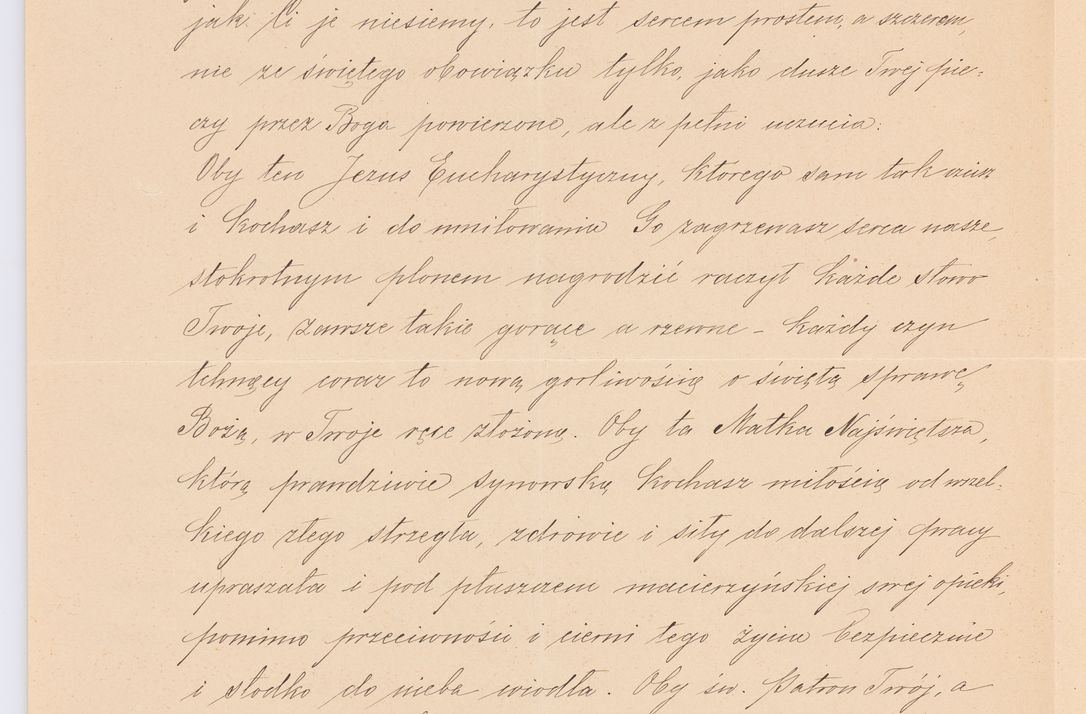 jak Ci je niesiemy, to jest sercem prostem, a szczerem,
nie ze świętego obowiązku tylko, jako dusze Twej pie-
czy przez Boga powierzone, ale z pełni uczucia:
Oby ten Jezus Eucharystyczny, którego sam tak czcisz
i kochasz i do umiłowania Go zagrzewasz serca nasze,
stokrotnym plonem nagrodzić raczył każde słowo
Twoje, zawsze takie gorące a rzewne – każdy czyn
tchnący coraz to nową gorliwością o świętą sprawę
Bożą, w Twoje ręce złożoną. Oby ta Matka Najświętsza,
którą prawdziwie synowską kochasz miłością od wszel-
kiego złego strzegła, zdrowie i siły do dalszej pracy
upraszała i pod płaszczem macierzyńskiej swej opieki,
pomimo przeciwności i cierni tego życia bezpiecznie
i słodko do nieba wiodła. Oby św. Patron Twój, a